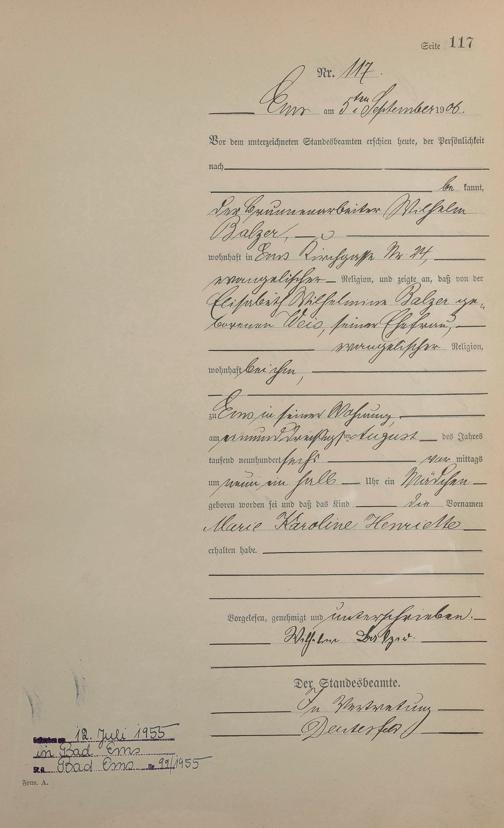 Seite 117
Nr. 117.
Ems am 5ten September 1906.
Vor dem unterzeichneten Standesbeamten erschien heute, der Persönlichkeit
nach
be kannt,
der Brunnenarbeiter Wilhelm
Balzer,
wohnhaft in Ems Kirchgasse Nr 24,
evangelischer Religion, und zeigte an, daß von der
Elisabeth Wilhelmine Balzer ge-
borenen Weis, seiner Ehefrau,
evangelischer Religion,
wohnhaft bei ihm,
zu Ems in seiner Wohnung
am einunddreißigsten August des Jahres
tausend neunhundert sechs vor mittags
um neun ein halb Uhr ein Mädchen
geboren worden sei und daß das Kind die Vornamen
Marie Karoline Henriette
erhalten habe.
Vorgelesen, genehmigt und unterschrieben.
Wilhelm Balzer
Der Standesbeamte.
In Vertretung
12. Juli 1955
in Bad Ems
St.A. Bad Ems Nr. 99/1955
Form. A.